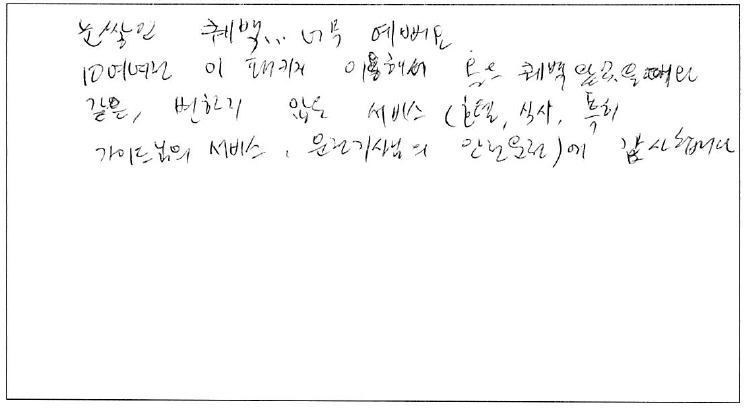 눈쌓인 퀘백... 너무 예뻐요
10여년전 이 패키지 이용해서 왔을 퀘백 때와
같은, 변하지 않은 서비스 (호텔, 식사, 특히
가이드님의 서비스, 운전기사님의 안전운전)에 감사합니다